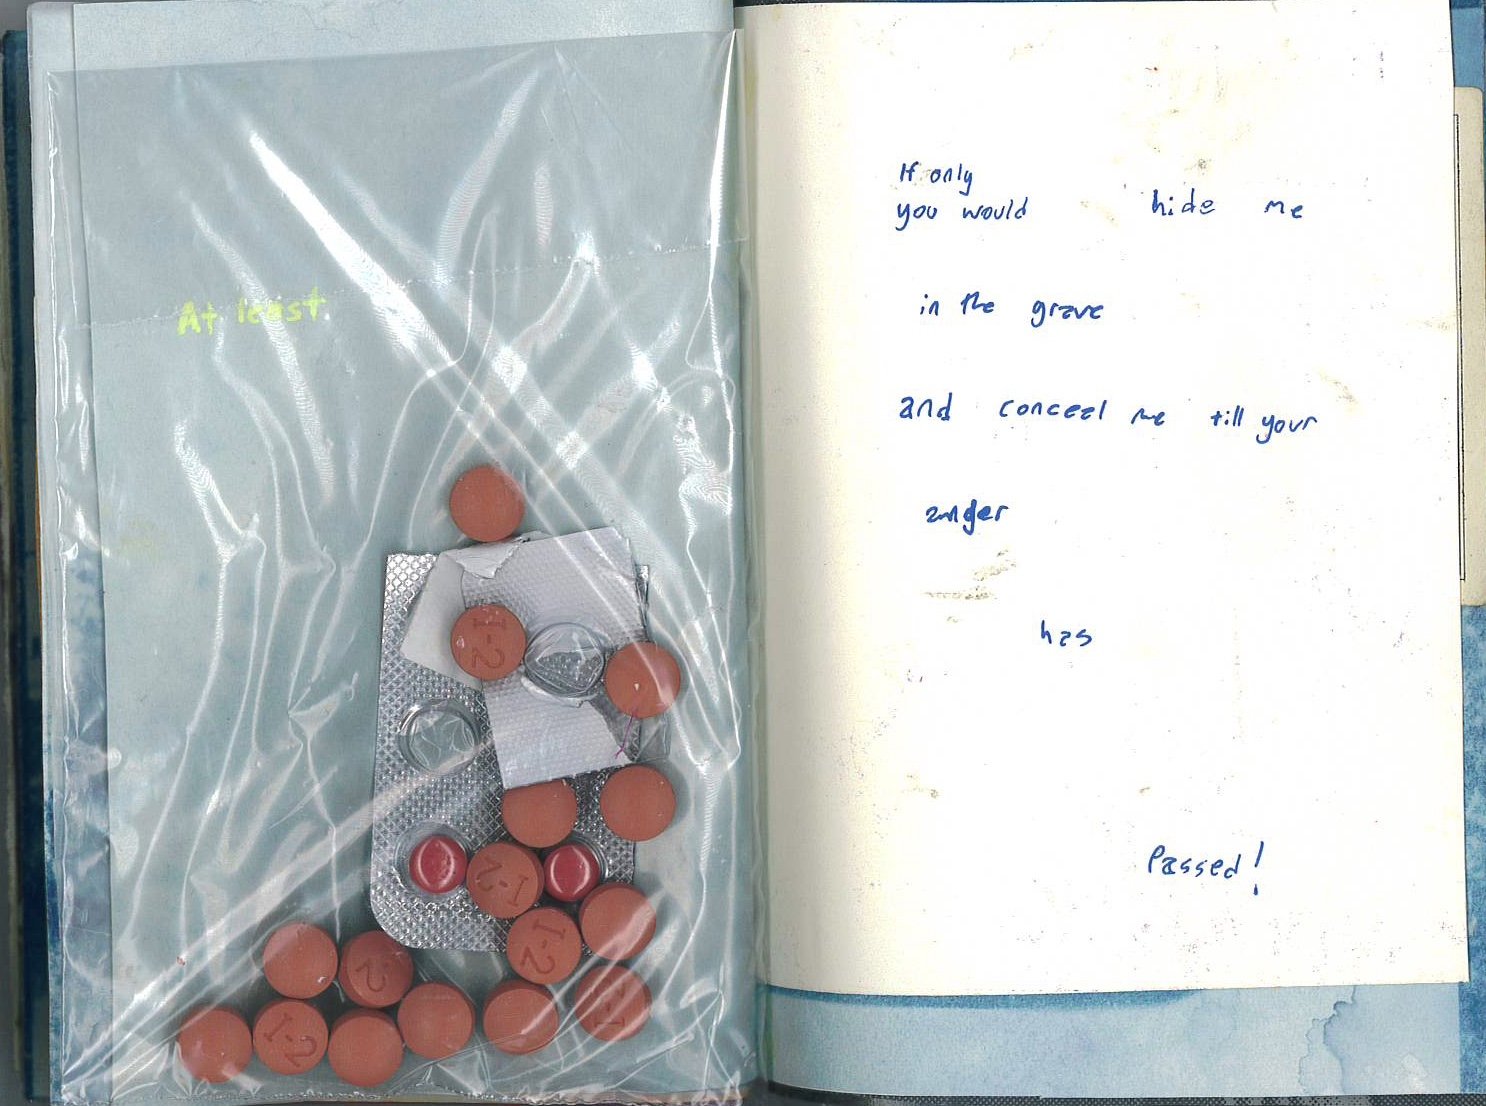 At least
If only
you would hide me
in the grave
and conceal me till your
anger
has
Passed!
I-2
I-2
I-2
2
I-2
I-2